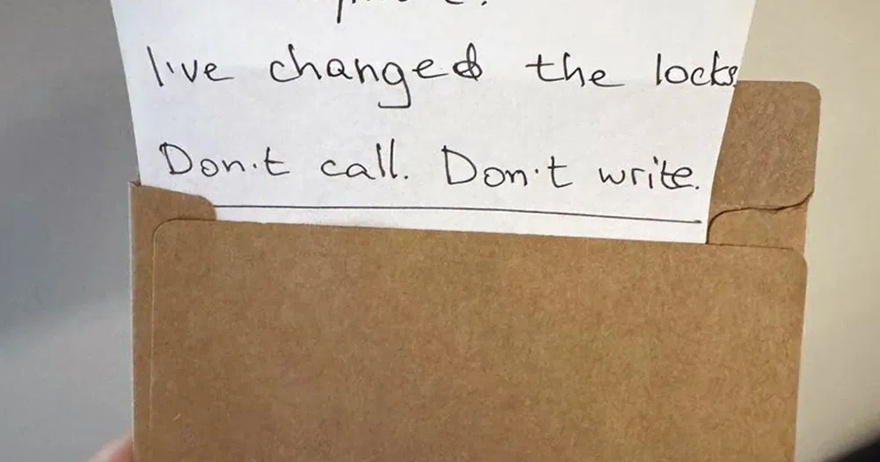 I've changed the locks.
Don't call. Don't write.